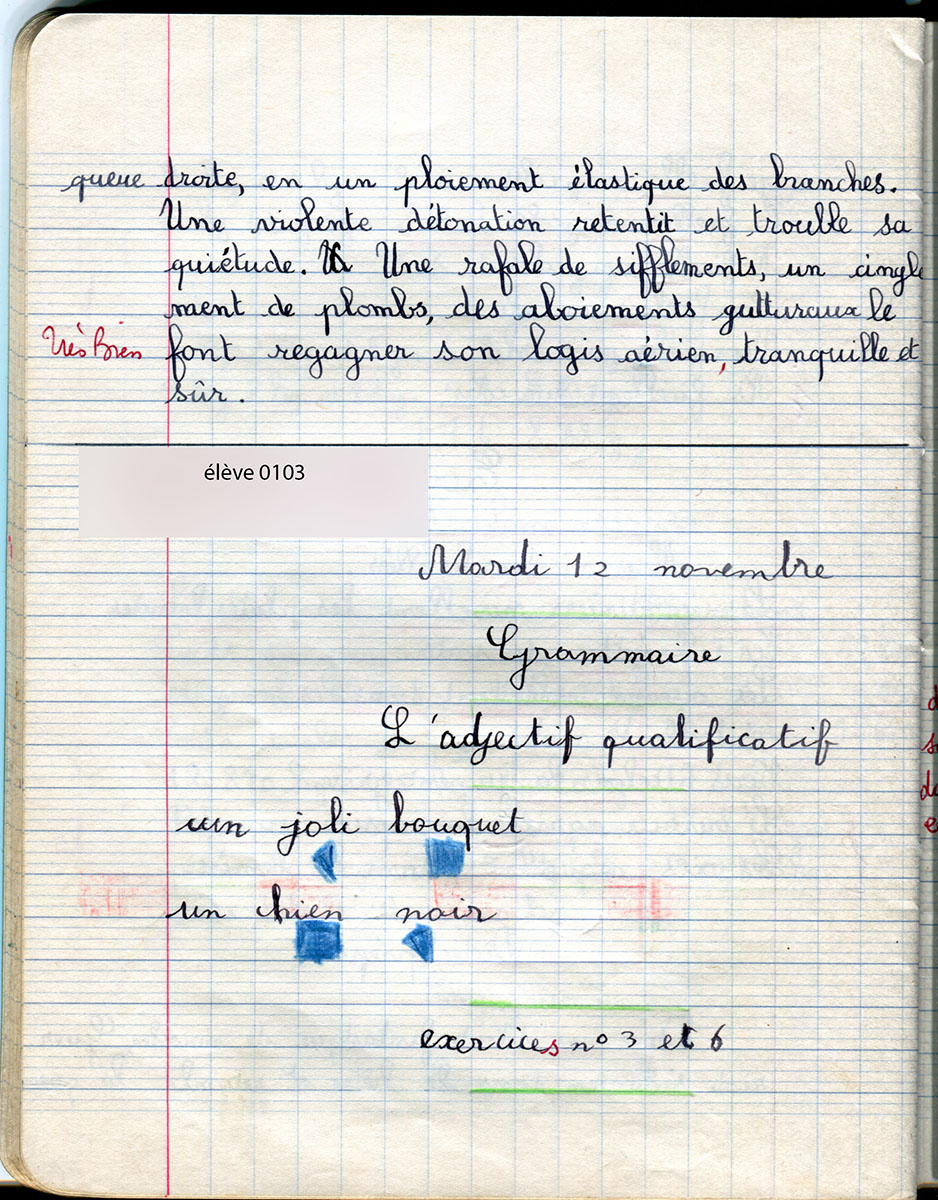 queue droite, en un ploiement élastique des branches.
Une violente détonation retentit et trouble sa
quiétude. Une rafale de sifflements, un cingle
ment de plombs, des aboiements gutturaux le
Très Bien font regagner son logis aérien, tranquille et
sûr.
élève 0103
Mardi 12 novembre
Grammaire
L'adjectif qualificatif
un joli bouquet
un chien noir
exercices n° 3 et 6